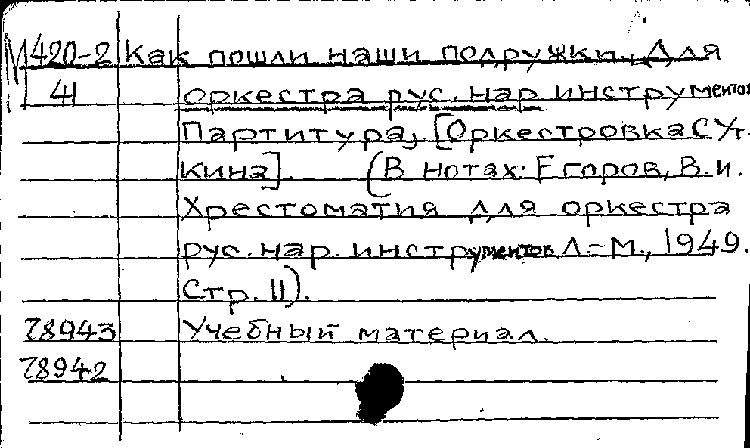 М420-2 Как пошли наши подружки. Для
Ч оркестра рус. нар. инструментов
Партитура, [Оркестровка С Ут-
кина]. (В нотах: Егоров, В.И.
Хрестоматия для оркестра
рус. нар. инструментов Л-М., 1949.
Стр. 11).
78943 Учебный материал.
78942